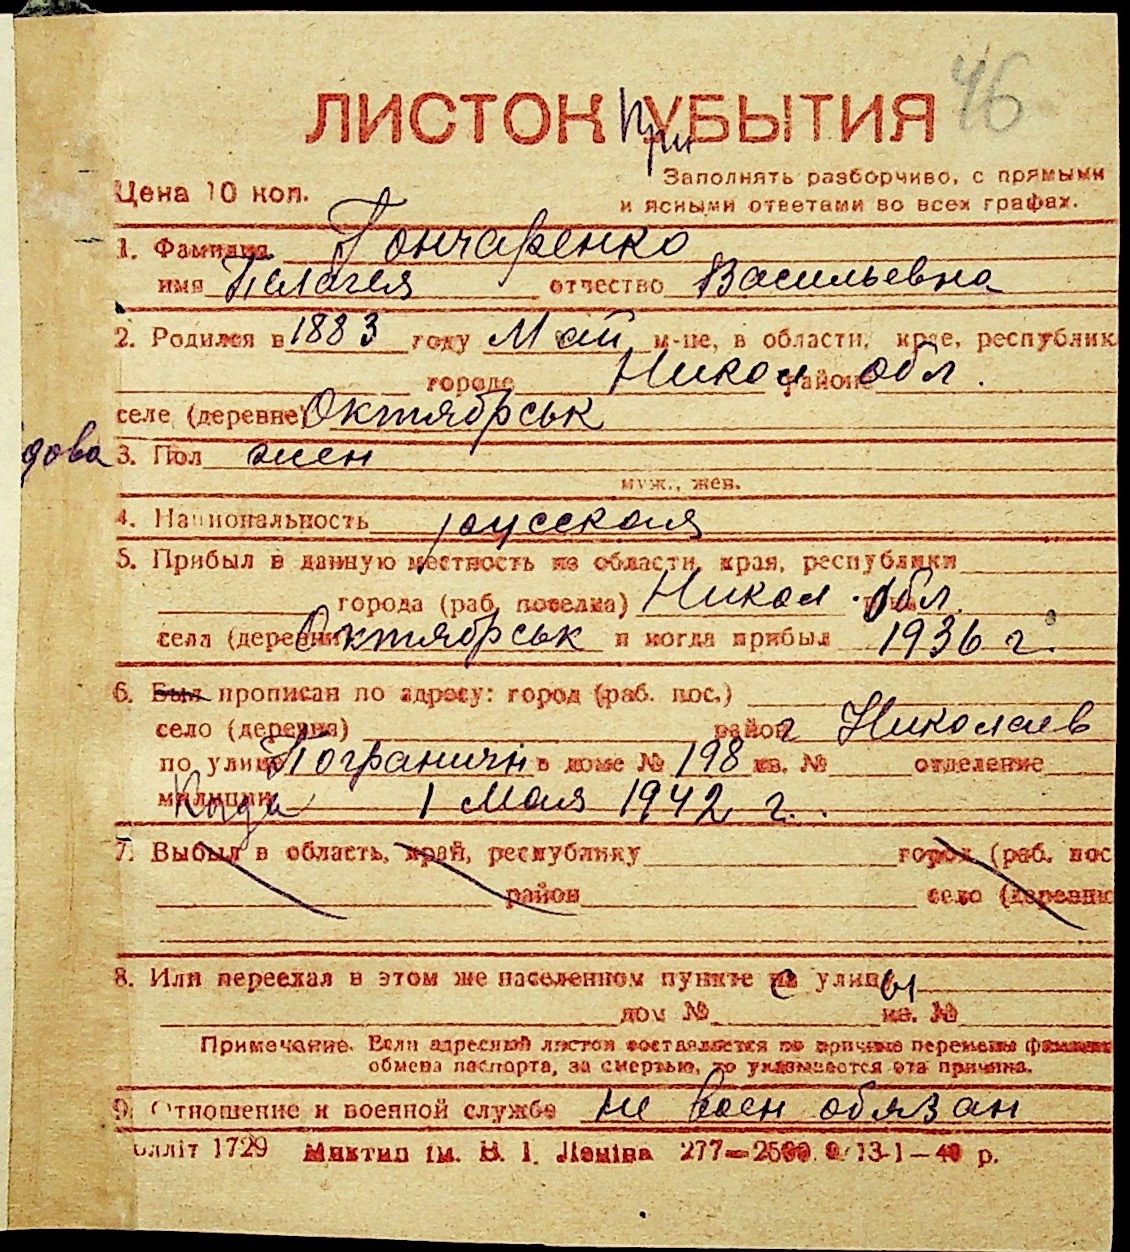 46
ЛИСТОК При УБЫТИЯ
Цена 10 коп.
Заполнять разборчиво, с прямыми
и ясными ответами во всех графах.
1. Фамилия Гончаренко
имя Пелагея отчество Васильевна
2. Родился в 1883 году Май м-це, в области, крае, республик
городе Никол районе обл.
селе (деревне) Октябрськ
дова 3. Пол жен
муж., жен.
4. Национальность русская
5. Прибыл в данную местность из области, края, республики
города (раб. поселка) Никол. обл.
села (деревни) Октябрськ и когда прибыл 1936 г.
6. Был прописан по адресу: город (раб. пос.)
село (деревня) район г Николаев
по улице Погранични в доме № 198 кв. № отделение
милиции Когда 1 Мая 1942 г.
7. Выбыл в область, край, республику город (раб. пос
район село (деревню
8. Или переехал в этом же населенном пункте на с улицы ы
дом № кв. №
Примечание. Если адресный листок составляется по причине перемены фамилии
обмена паспорта, за смертью, то указывается эта причина.
9. Отношение к военной службе не воен обязан
олліт 1729 Миктип ім. В. І. Леніна 277—2500 0/13-1—40 р.